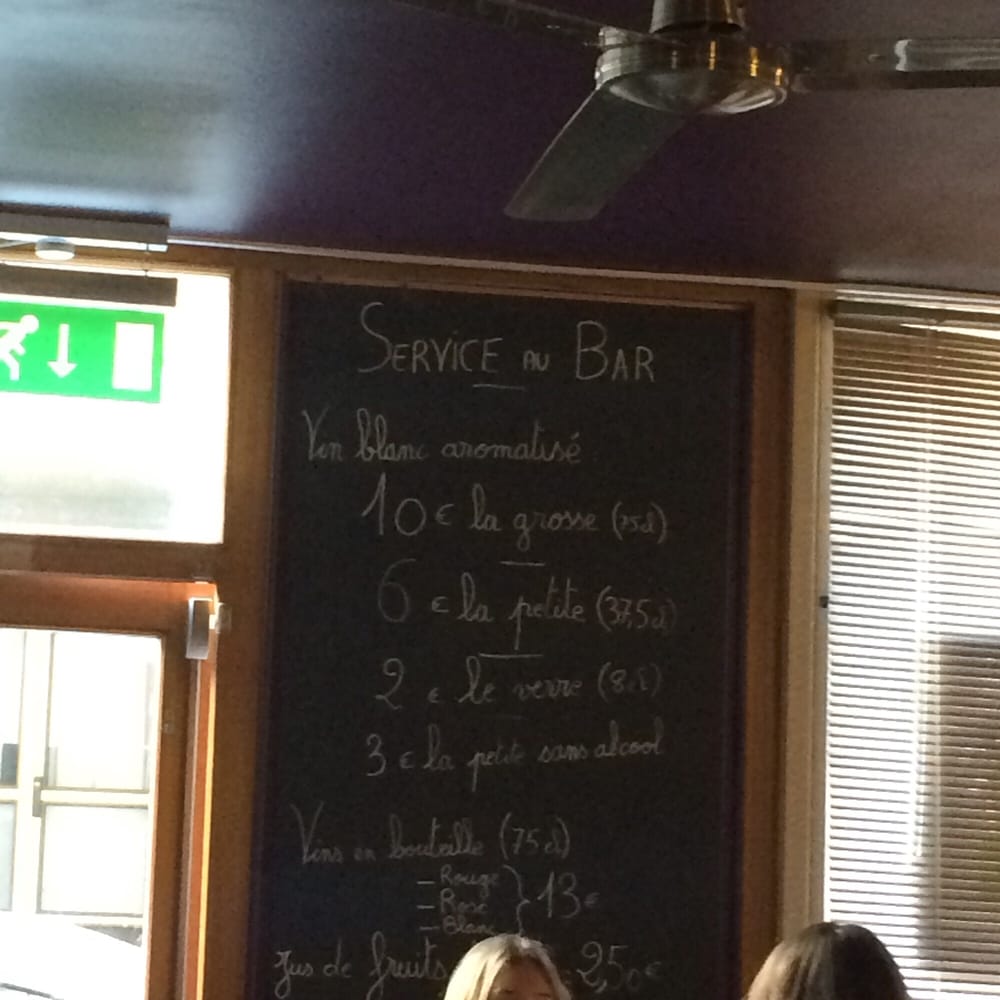 SERVICE AU BAR
Vin blanc aromatisé
10€ la grosse (75cl)
6 € la petite (37,5cl)
2 € le verre (8cl)
3 € la petite sans alcool
Vins en bouteille (75cl)
– Rouge
– Rosé } 13€
– Blanc
Jus de fruits 2,50€